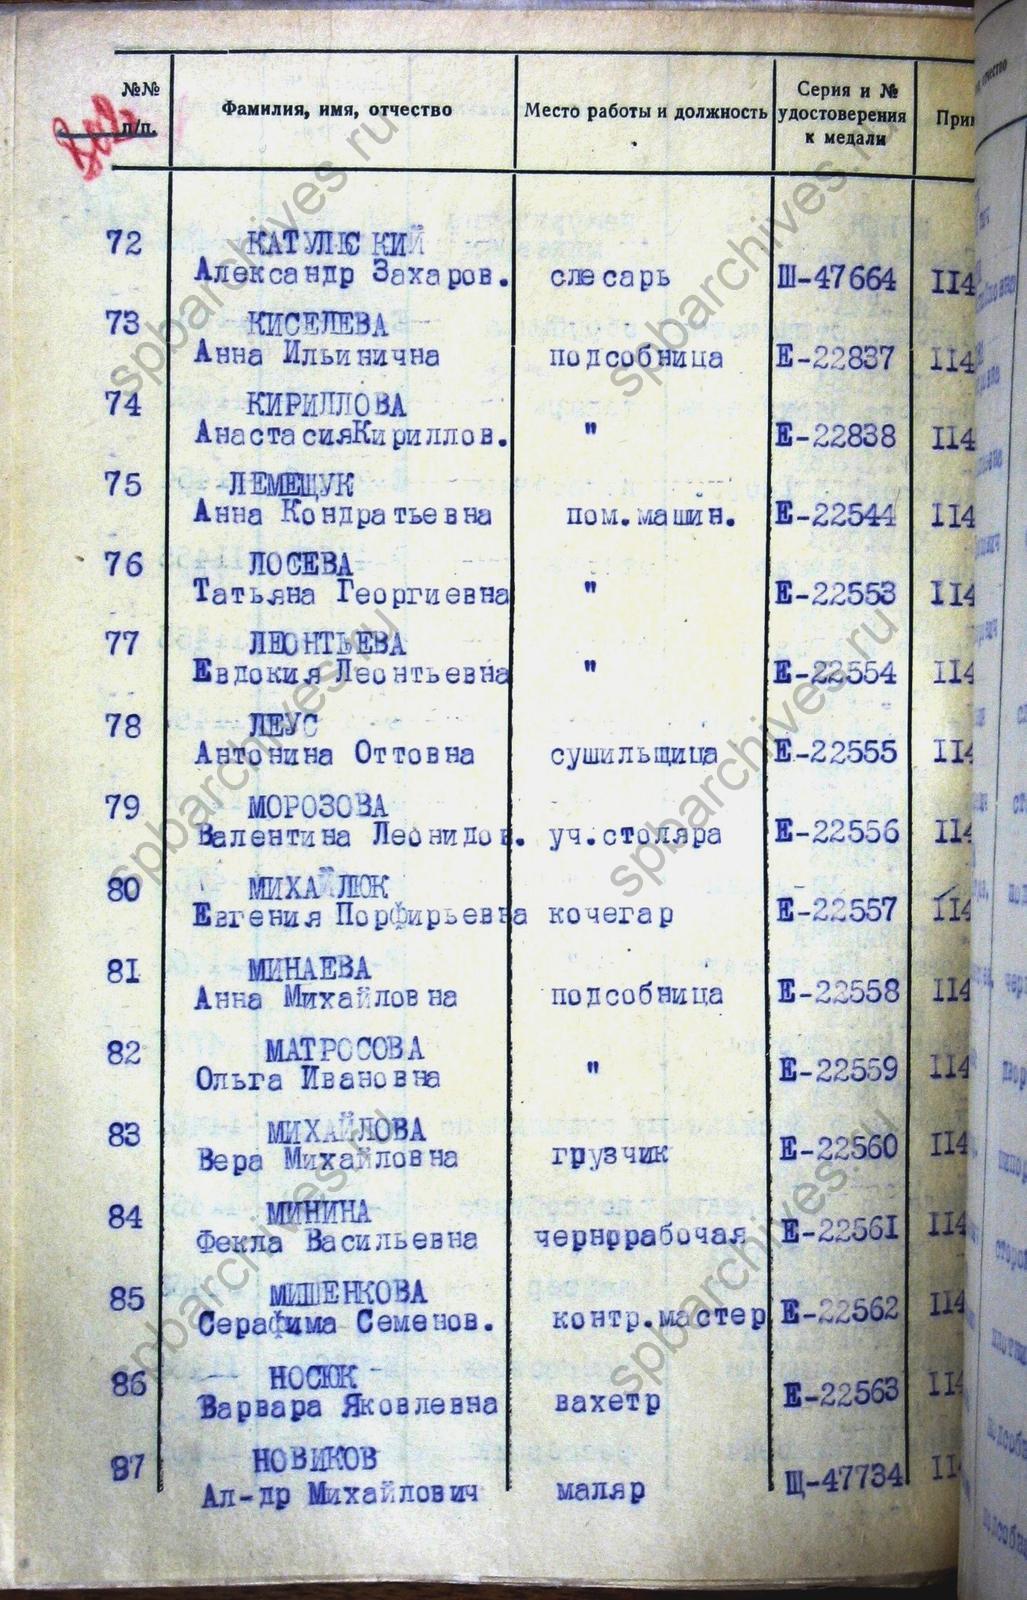 №№ п/п. Фамилия, имя, отчество Место работы и должность Серия и № удостоверения к медали
72 КАТУЛЮСКИЙ
Александр Захаров. слесарь Ш-47664 II4
73 КИСЕЛЕВА
Анна Ильинична подсобница Е-22837 II4
74 КИРИЛЛОВА
АнастасияКириллов. " Е-22838 II4
75 ЛЕМЕЩУК
Анна Кондратьевна пом.машин. Е-22544 II4
76 ЛОСЕВА
Татьяна Георгиевна " Е-22553 II4
77 ЛЕОНТЬЕВА
Евдокия Леонтьевна " Е-22554 II4
78 ЛЕУС
Антонина Оттовна сушильщица Е-22555 II4
79 МОРОЗОВА
Валентина Леонидов. уч.столяра Е-22556 II4
80 МИХАЙЛЮК
Евгения Порфирьевна кочегар Е-22557 II4
81 МИНАЕВА
Анна Михайловна подсобница Е-22558 II4
82 МАТРОСОВА
Ольга Ивановна " Е-22559 II4
83 МИХАЙЛОВА
Вера Михайловна грузчик Е-22560 II4
84 МИНИНА
Фекла Васильевна чернррабочая Е-22561 II4
85 МИШЕНКОВА
Серафима Семенов. контр.мастер Е-22562 II4
86 НОСЮК
Варвара Яковлевна вахетр Е-22563 II4
87 НОВИКОВ
Ал-др Михайлович маляр Щ-47734 II4
spbarchives.ru
spbarchives.ru
spbarchives.ru
spbarchives.ru
spbarchives.ru
spbarchives.ru